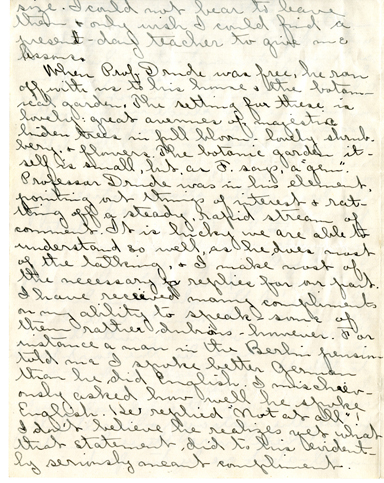 size. I could not bear to leave
them & only wish I could find a
present-day teacher to give me
lessons.
When Prof. Drude was free, he ran
off with us to his home & the botan-
ical garden. The setting for these is
lovely: great avenues of majestic
linden trees in full bloom. lovely shrub-
bery, & flowers. The botanic garden it-
self is small, but, as F. says, a "gem".
Professor Drude was in his element,
pointing out things of interest & rat-
tling off a steady, rapid stream of
comment. It is lucky we are able to
understand so well, as he does most
of the talking, & I make most of
the necessary replies for our part.
I have received many compliments
on my ability to speak some of
them rather dubious however. For
instance a man in the Berlin pension
told me I spoke better German
than he did English. I mischiev-
ously asked how well he spoke
English. He replied "Not at all"!
I don't believe he realizes yet what
that statement did to his evident-
ly seriously meant compliment.